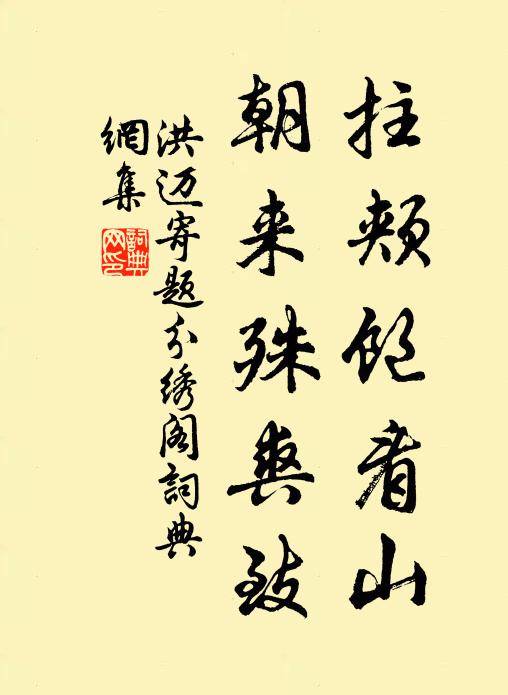 拄颊饱看山
朝来殊爽致
洪迈寄题分绣阁詞典
網集
詞典
网印